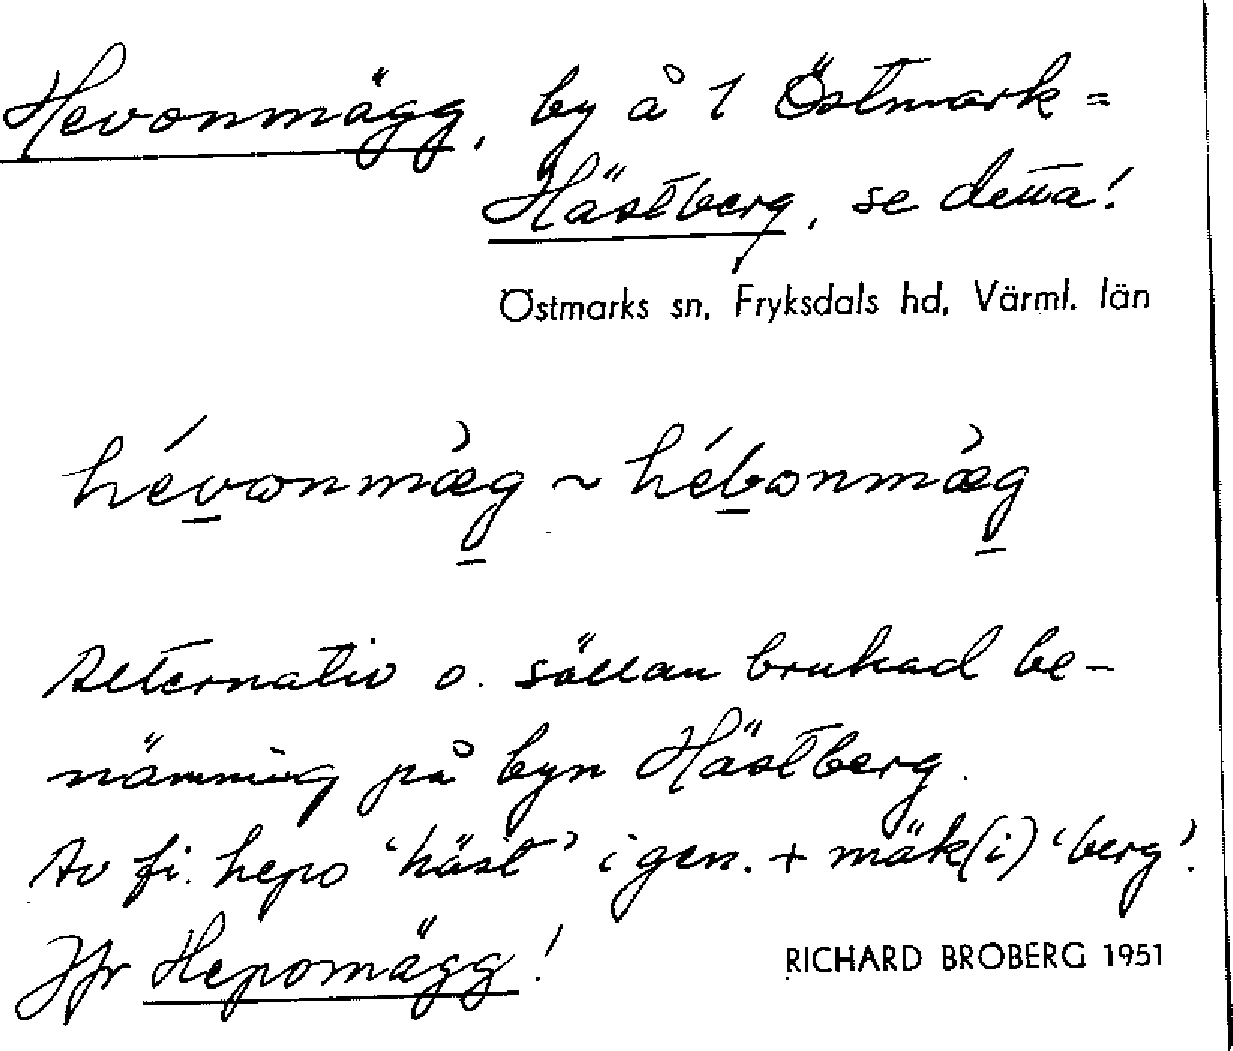 Hevonmägg, by å 1 Östmark =
Hästberg, se detta!
Östmarks sn, Fryksdals hd, Värml. län
hévonmæ̀g ~ hébonmæ̀g
Alternativ o. sällan brukad be-
nämning på byn Hästberg.
Av fi. hepo 'häst' i gen. + mäk(i) 'berg'.
Jfr Hepomägg!
RICHARD BROBERG 1951